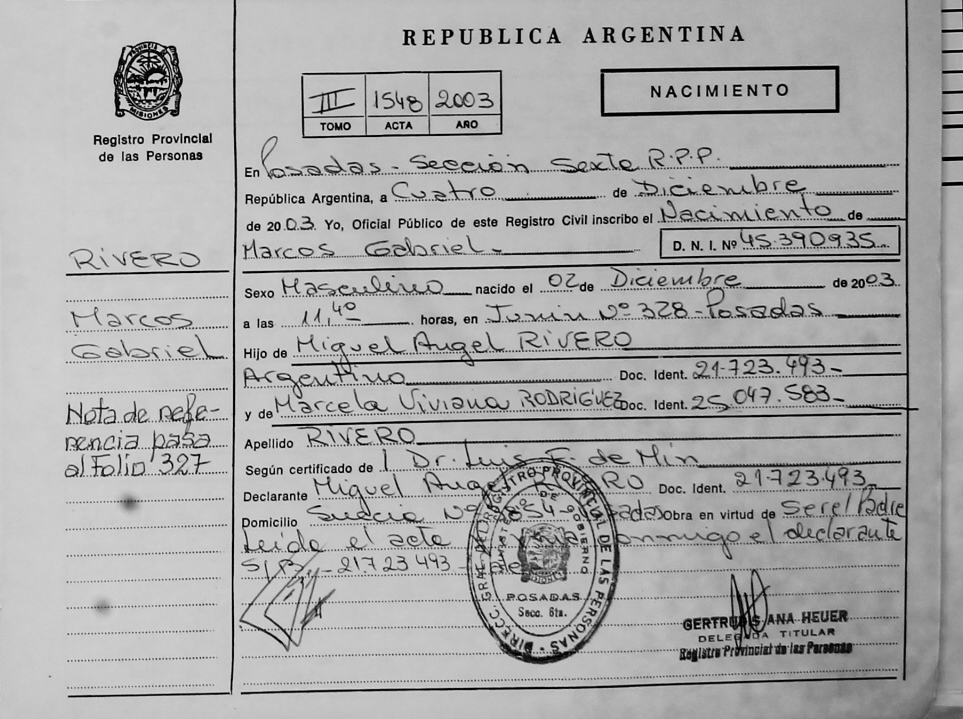 REPUBLICA ARGENTINA
PROVINCIA DE MISIONES
Registro Provincial
de las Personas
III 1548 2003
TOMO ACTA AÑO
NACIMIENTO
En Posadas - Sección Sexte R.P.P.
República Argentina, a Cuatro de Diciembre
de 2003 Yo, Oficial Público de este Registro Civil inscribo el Nacimiento de
Marcos Gabriel - D. N. I. Nº 45.390935
Sexo Masculino nacido el 02 de Diciembre de 2003
a las 11,40 horas, en Junin Nº 328 - Posadas
Hijo de Miguel Angel RIVERO
Argentino Doc. Ident. 21.723.493 -
y de Marcela Viviana RODRIGUEZ Doc. Ident. 25.047.583 -
Apellido RIVERO
Según certificado de Dr. Luis F. de Min
Declarante Miguel Angel RO Doc. Ident. 21.723.493
Domicilio Suecia Nº Obra en virtud de Ser el Padre
Leida el acta conmigo el declarante
21723493 -
RIVERO
Marcos
Gabriel
Nota de refe-
rencia pasa
al Folio 327
DIREC. GRAL. DEL REGISTRO PROVINCIAL DE LAS PERSONAS
MINISTERIO DE GOBIERNO
POSADAS
Secc. 6ta.
GERTRUDIS ANA HEUER
DELEGADA TITULAR
Registro Provincial de las Personas